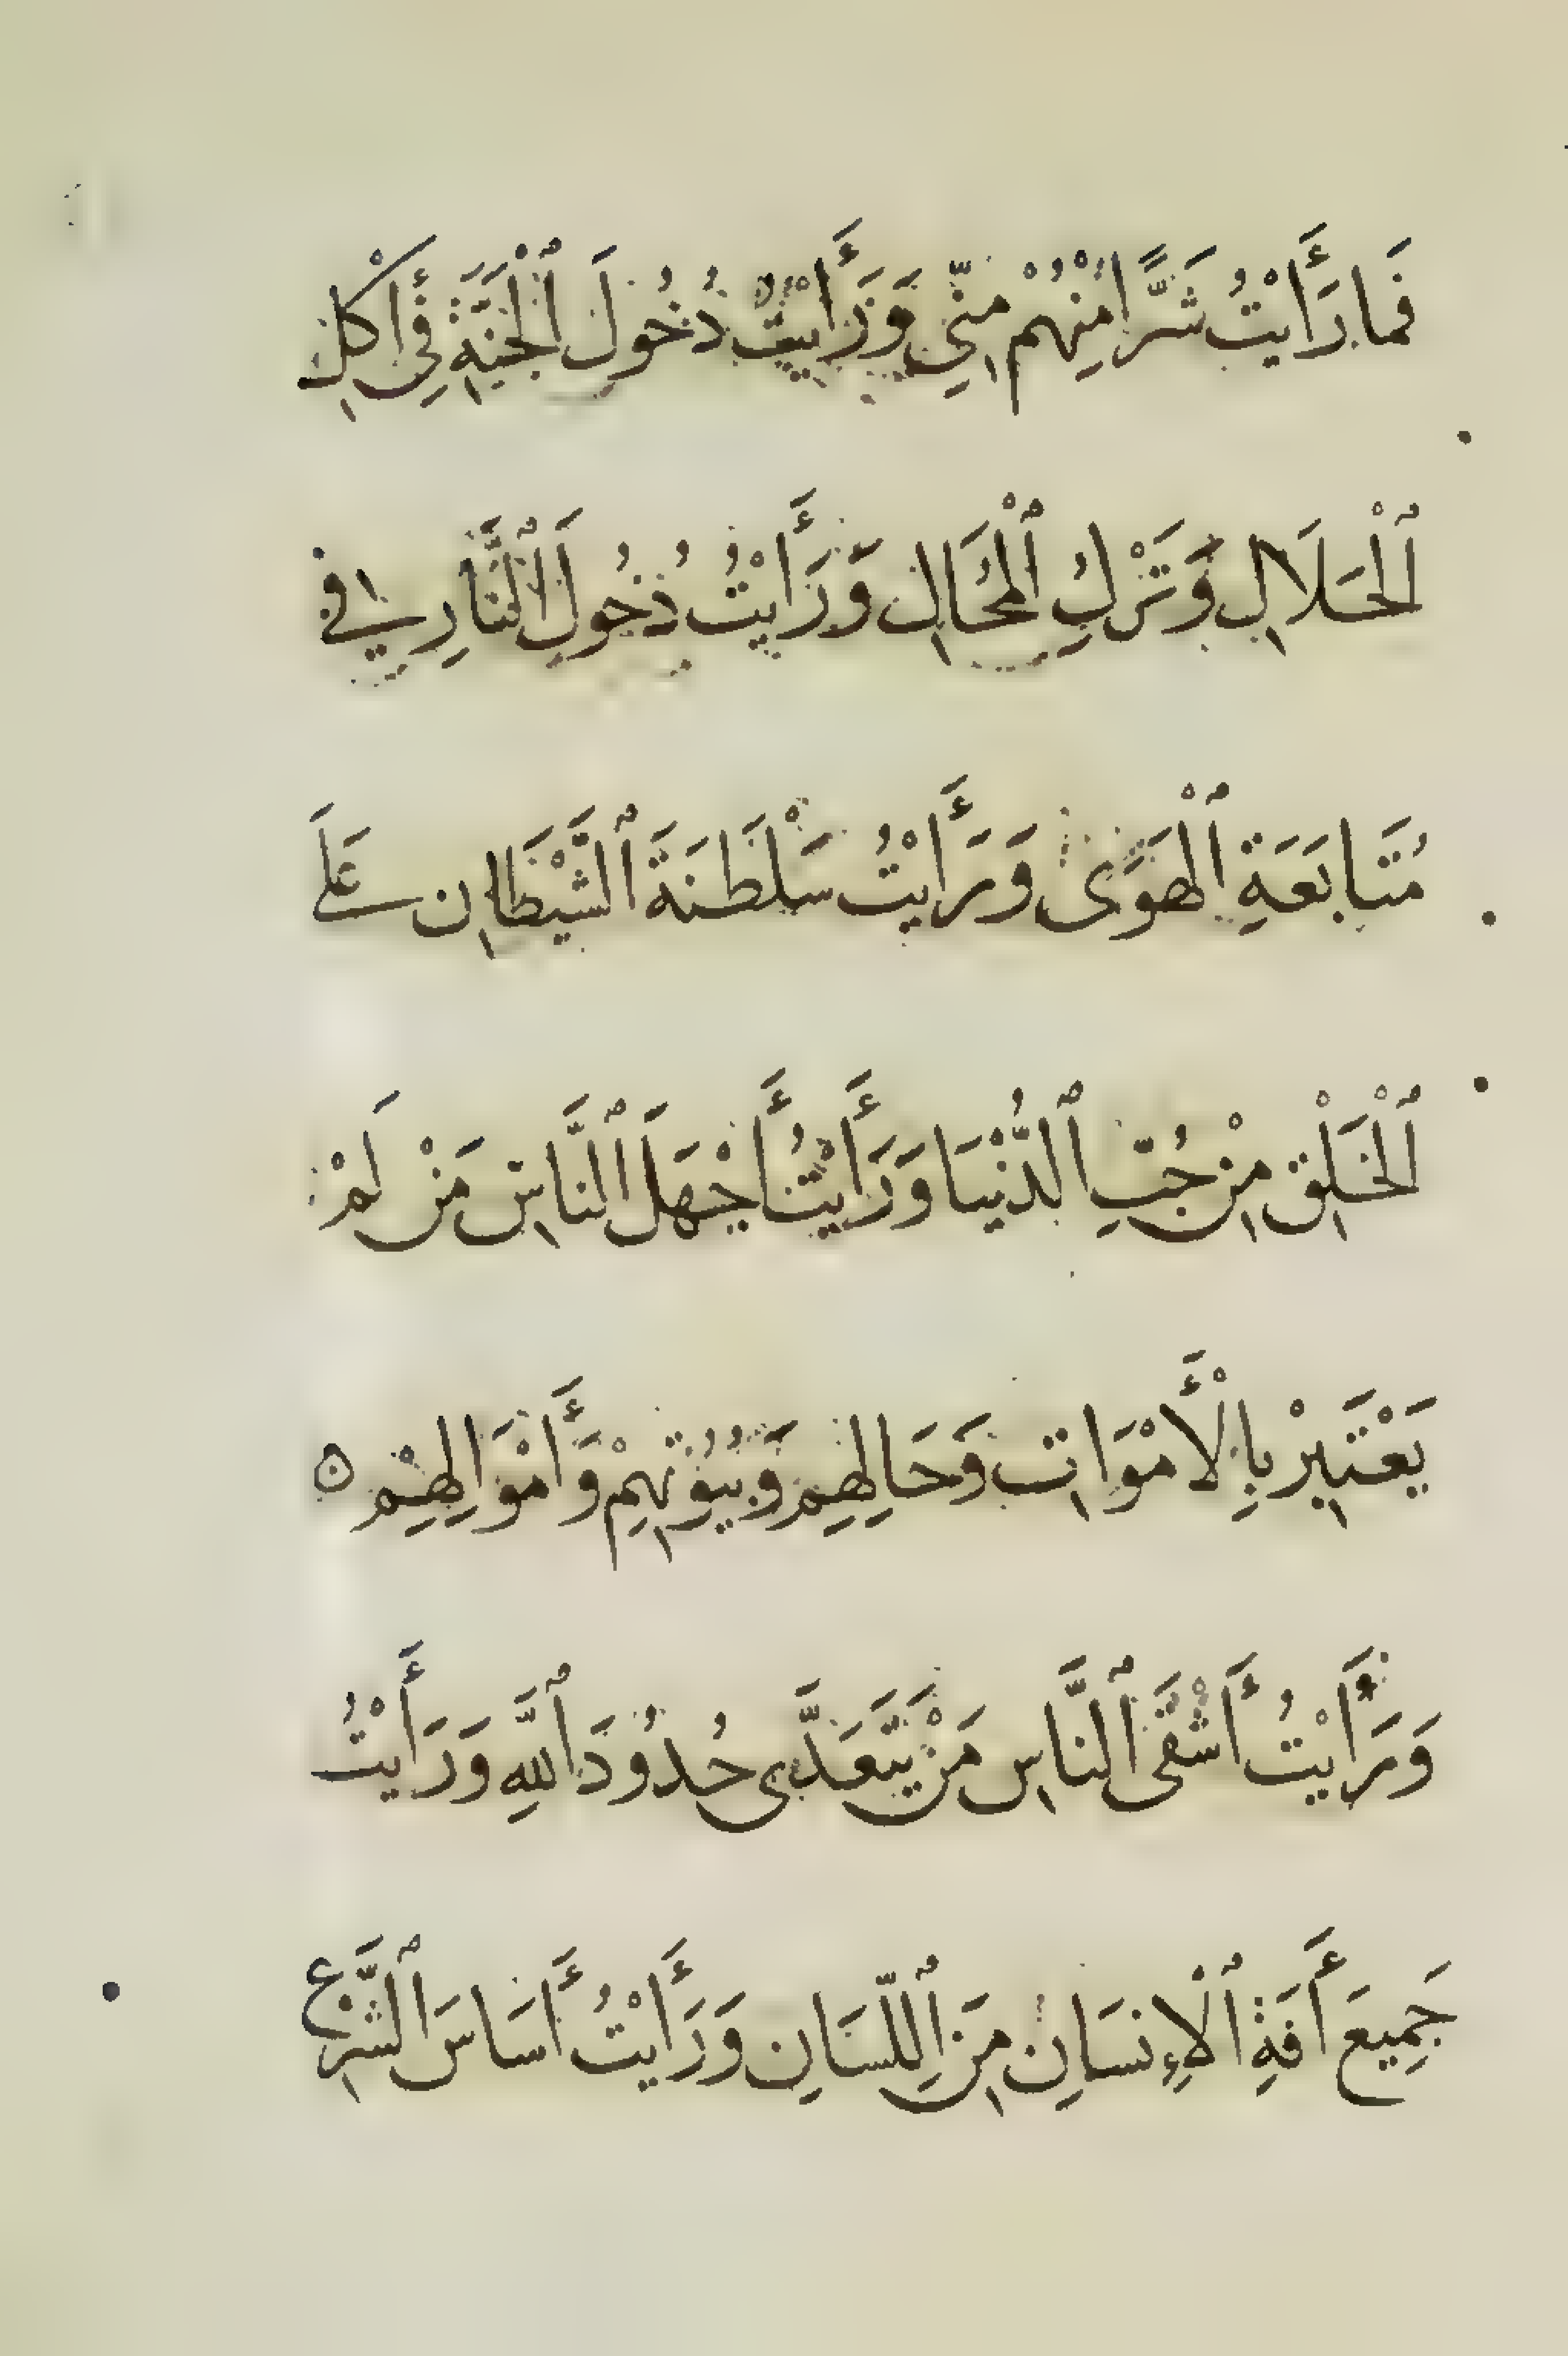 فَما رَأَيْتُ شَرًّا مِنْهُمْ مِنِّي وَرَأَيْتُ دُخُولَ ٱلْجَنَّةِ فِي أَكْلِ
ٱلْحَلَالِ وَتَرْكِ ٱلْمُحَالِ وَرَأَيْتُ دُخُولَ ٱلنَّارِ فِي
مُتَابَعَةِ ٱلْهَوَى وَرَأَيْتُ سَلْطَنَةَ ٱلشَّيْطَانِ عَلَى
ٱلْخَلْقِ مِنْ حُبِّ ٱلدُّنْيَا وَرَأَيْتُ أَجْهَلَ ٱلنَّاسِ مَنْ لَمْ
يَعْتَبِرْ بِالْأَمْوَاتِ وَحَالِهِمْ وَبُيُوتِهِمْ وَأَمْوَالِهِمْ ۝
وَرَأَيْتُ أَشْقَى ٱلنَّاسِ مَنْ يَتَعَدَّى حُدُودَ ٱللَّهِ وَرَأَيْتُ
جَمِيعَ أَفَةِ ٱلْإِنسَانِ مِنَ ٱللِّسَانِ وَرَأَيْتُ أَسَاسَ ٱلشَّرْعِ